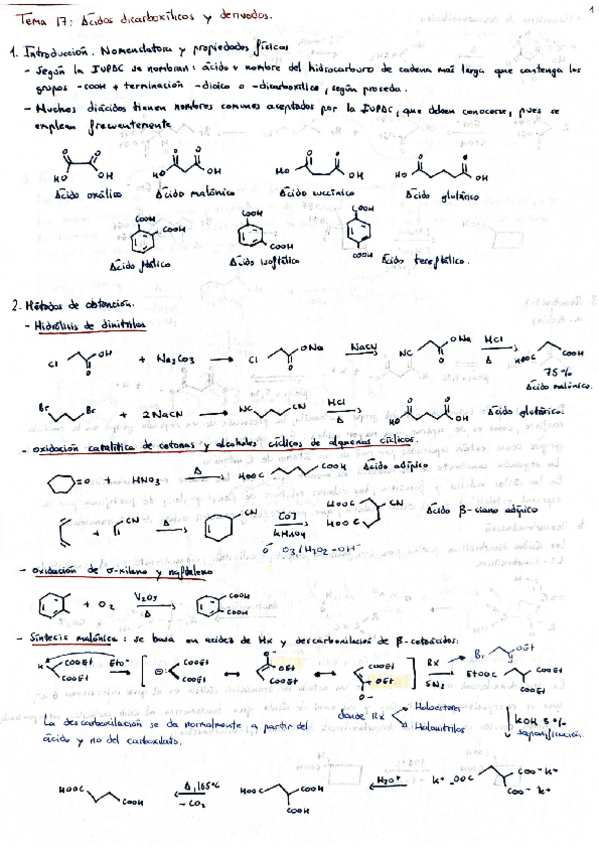 1
Tema 17: Ácidos dicarboxílicos y derivados.
1. Introducción. Nomenclatura y propiedades físicas
- Según la IUPAC se nombran: ácido + nombre del hidrocarburo de cadena más larga que contenga los
grupos -COOH + terminación -dioico o -dicarboxílico, según proceda.
- Muchos diácidos tienen nombres comunes aceptados por la IUPAC, que deben conocerse, pues se
emplean frecuentemente
O O O O O O O O
HO OH HO OH HO OH HO OH
Ácido oxálico Ácido malónico Ácido succínico Ácido glutárico
COOH COOH COOH
COOH COOH COOH
Ácido ftálico Ácido isoftálico Ácido tereftálico.
2. Métodos de obtención.
- Hidrólisis de dinitrilos
Cl OH O + Na2CO3 → Cl ONa O NaCN → NC ONa O HCl Δ → HOOC COOH
75%
Ácido malónico.
Br Br + 2NaCN → NC CN HCl Δ → HO O O OH Ácido glutárico.
- Oxidación catalítica de cetonas y alcoholes cíclicos de alquenos cíclicos.
=O + HNO3 Δ → HOOC COOH Ácido adípico
+ CN Δ → CN CO3 KHSO4 → HOOC HOOC CN Ácido β-ciano adípico
ó O3/H2O2 -OH-
- Oxidación de o-xileno y naftaleno
+ O2 V2O5 Δ → COOH COOH
- Síntesis malónica: se basa en acidez de Hα y descarbonilación de β-cetoácidos.
H COOEt COOEt EtO- → [ ⊖: COOEt COOEt ↔ O- OEt COOEt ↔ COOEt OEt O- ] RX SN2 → EtOOC COOEt COOEt
Br OEt O
donde RX Haloésteres
Halonitrilos
KOH 5%
saponificación.
La descarboxilación se da normalmente a partir del
ácido y no del carboxilato.
HOOC COOH Δ, 165ºC - CO2 ← HOOC COOH COOH H3O+ ← K+ -OOC COO- K+ COO- K+